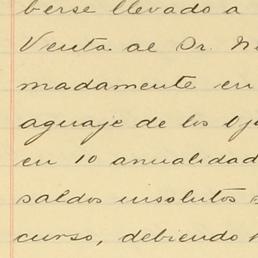 berse llevado a
Venta al Dr. Ne
madamente en
aguaje de los Oj
en 10 anualidad
saldos insolutos s
curso, debiendo